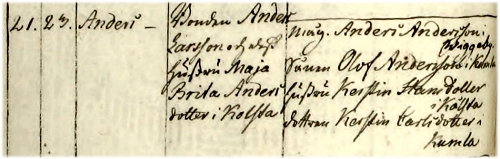 21. 23. Anders –
Bonden Anders
Larsson och dess
Hustru Maja
Brita Anders
dotter i Kolsta
Måg. Anders Andersson i
Wiggeby.
Sonen Olof Andersson i Kumla
Hustru Kerstin Hans Dotter
i Kålsta
dottren Kerstin Carlsdotter i
Kumla